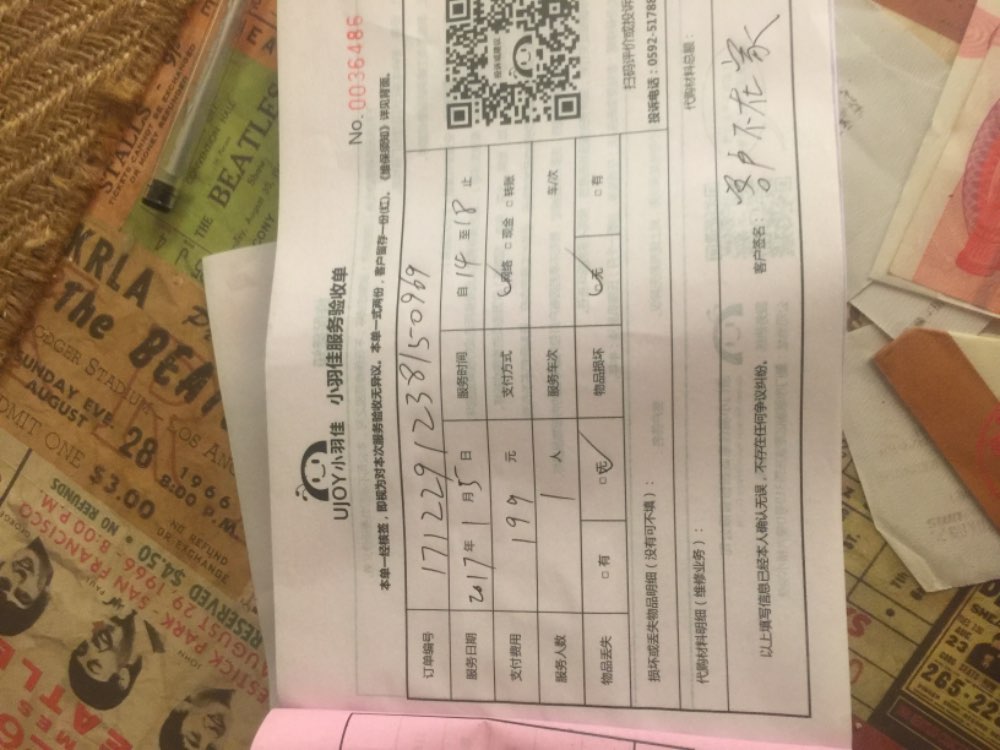 No. 0036486
UJOY小羽佳 小羽佳服务验收单
本单一经核签，即视为对本次服务验收无异议。本单一式两份，客户留存一份(红)。《维保须知》详见背面。
订单编号 171229123815 0969
服务日期 2017年1月5日 服务时间 自14至18止
支付费用 199元 支付方式 网络 □现金 □转账
服务人数 1人 服务车次 车/次
物品丢失 □有 □无 物品损坏 无 □有
投诉或建议
扫码评价或投诉
投诉电话：0592-51788
损坏或丢失物品明细（没有可不填）：
代购材料明细（维修业务）： 代购材料总额：
以上填写信息已经本人确认无误，不存在任何争议纠纷。 客户签名： 客户不在家
STALLS
THE BEATLES
KRLA
The BEAT
DODGER STADIUM
LOS AN
SUNDAY EVE.
AUGUST 28 1966
8:00 P.M.
ADMIT ONE $3.00
NO REFUNDS
NO REFUND
OR EXCHANGE
$4.50 - 8:00 P.M.
SAN FRANCISCO
AUGUST 29, 1966
RESERVED
PAUL
JOHN
265-22
23